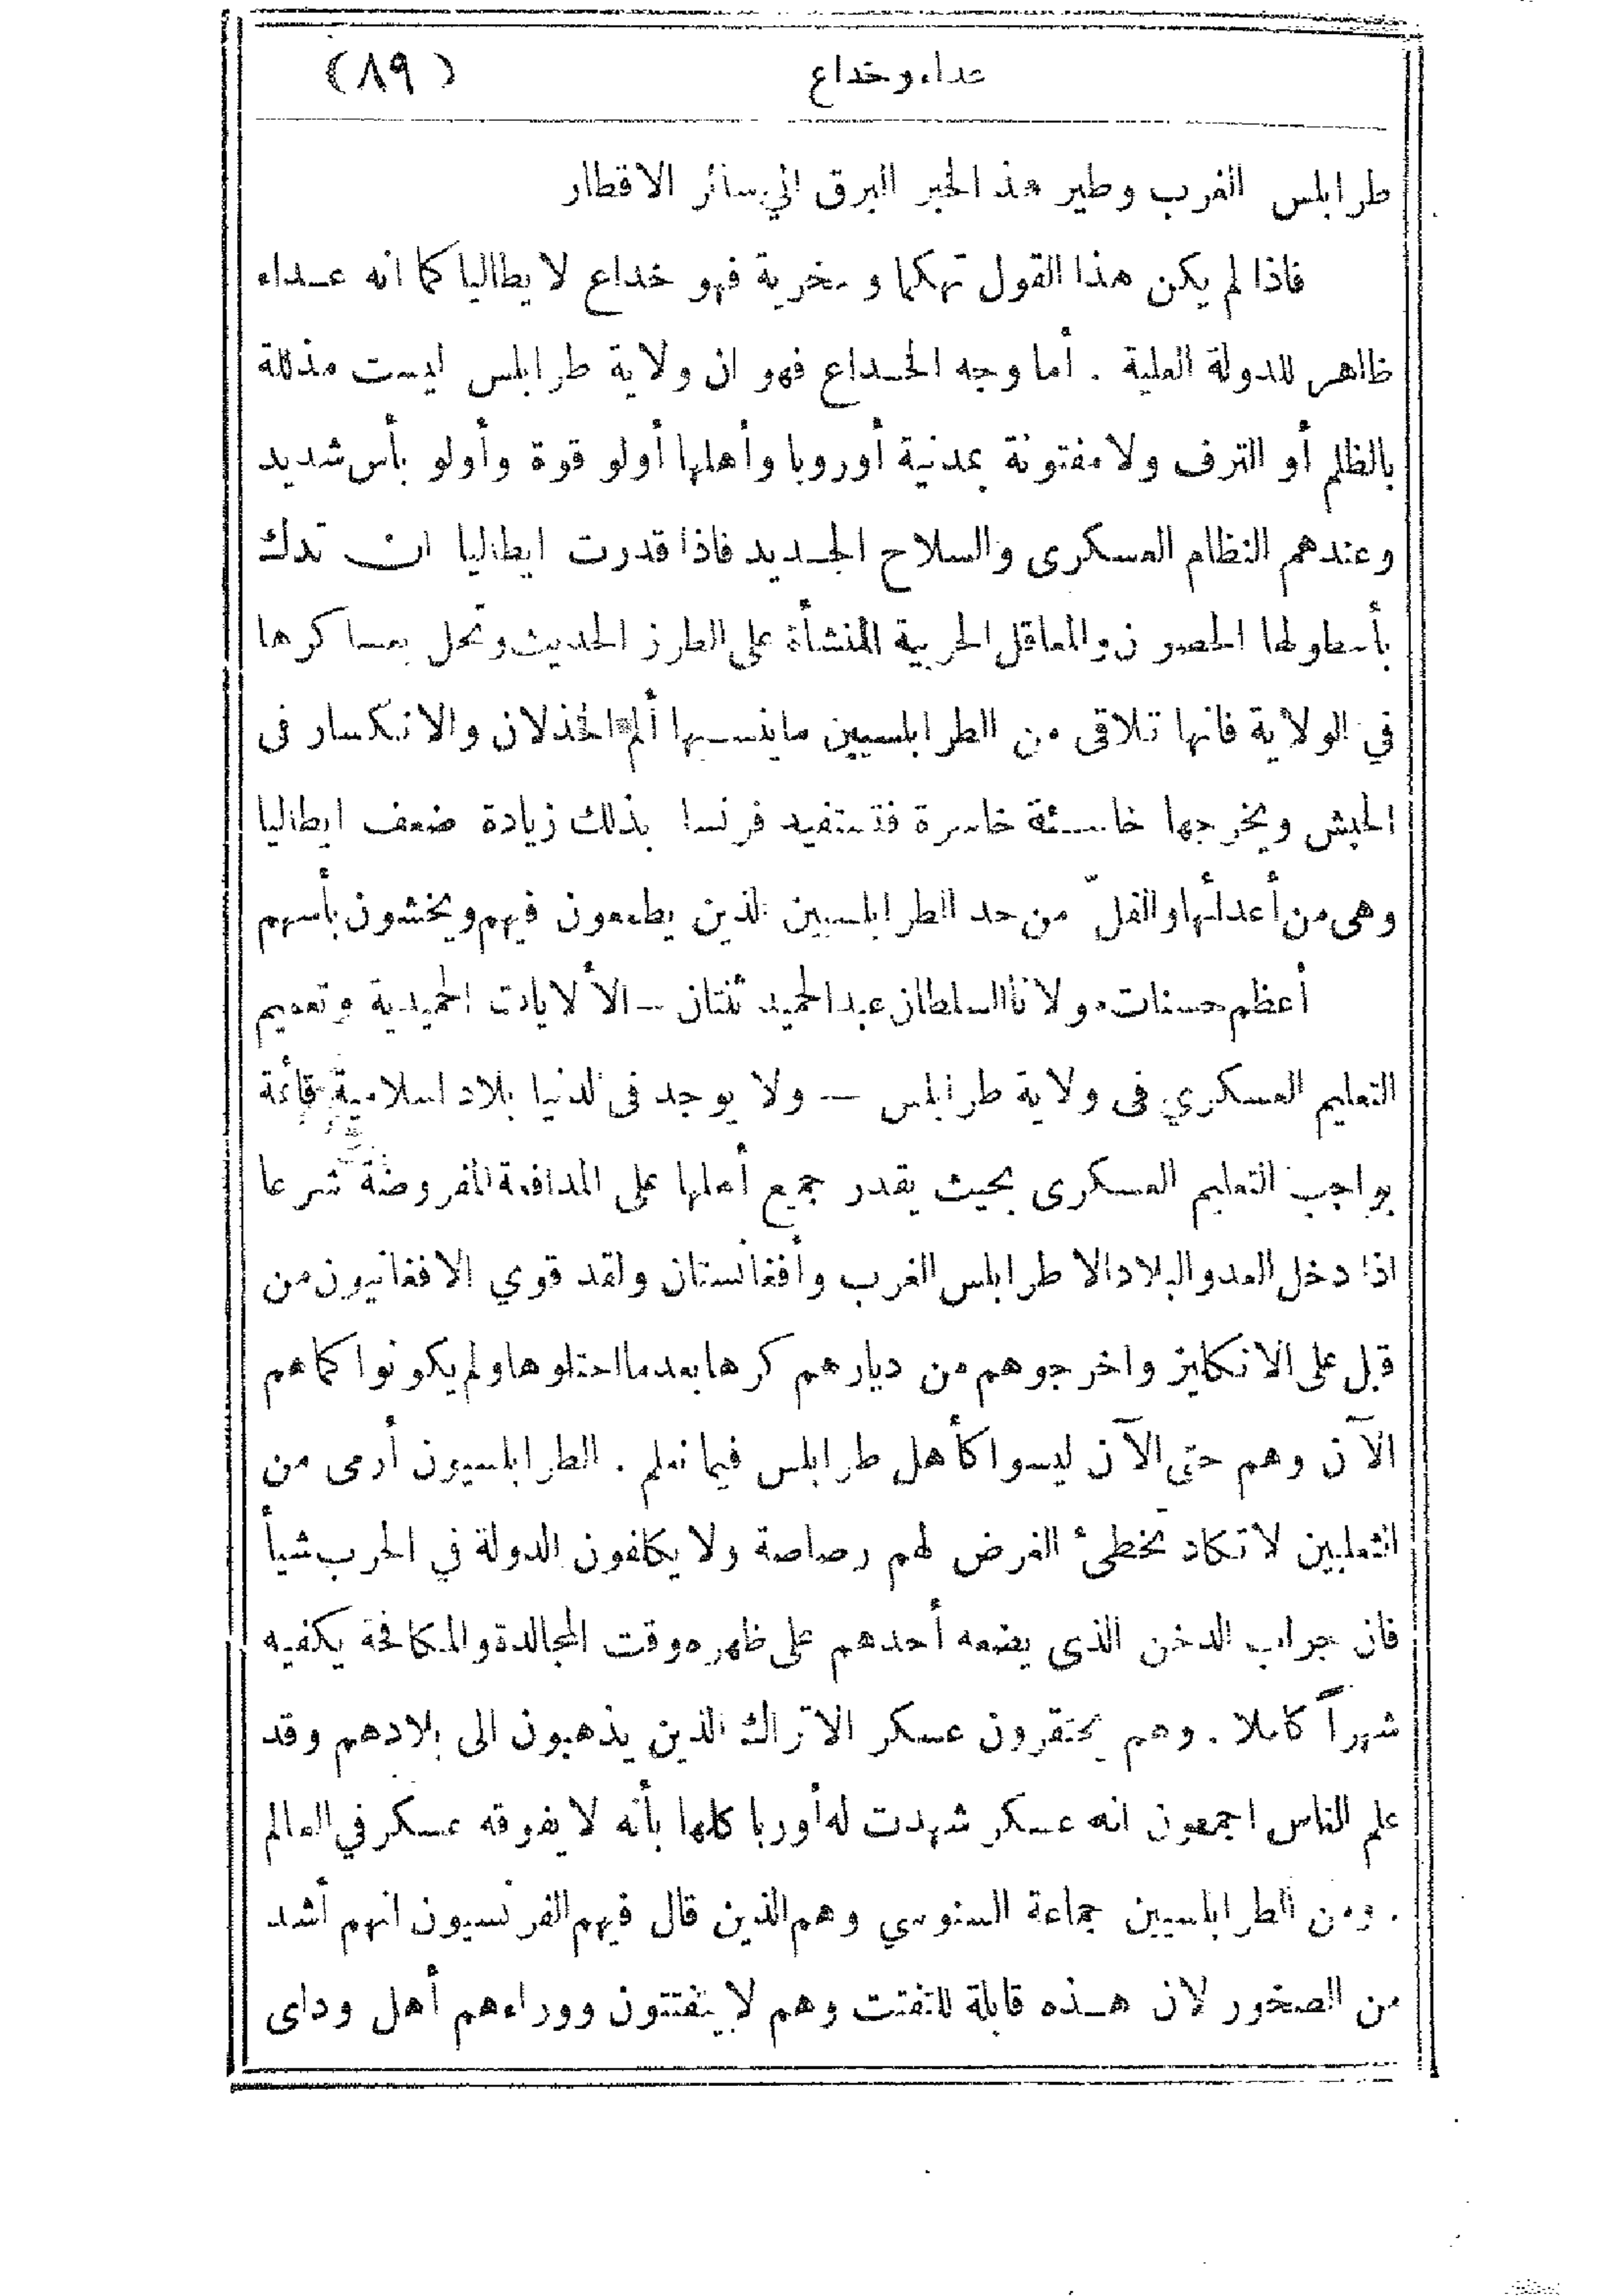 عداء وخداع (٨٩)
طرابلس الغرب وطير هذا الخبر البرق الى سائر الاقطار
فاذا لم يكن هذا القول تهكما وسخرية فهو خداع لايطاليا كما انه عداء
ظاهر للدولة العلية . أما وجه الخداع فهو ان ولاية طرابلس ليست مذللة
بالظلم أو الترف ولا مفتونة بمدنية أوروبا وأهلها أولو قوة وأولو بأس شديد
وعندهم النظام العسكرى والسلاح الجديد فاذا قدرت ايطاليا ان تدك
بأسطولها الحصون والمعاقل الحربية المنشأة على الطرز الحديث وتحل بعساكرها
في الولاية فانها تلاقى من الطرابلسيين ماينسيها ألم الخذلان والانكسار فى
الحبش ويخرجها خاسئة خاسرة فتستفيد فرنسا بذلك زيادة ضعف ايطاليا
وهى من أعدائها والفلّ من حد الطرابلسيين الذين يطمعون فيهم ويخشون بأسهم
أعظم حسنات مولانا السلطان عبد الحميد ثنتان – الألايات الحميدية وتعميم
التعليم العسكري فى ولاية طرابلس – ولا يوجد فى الدنيا بلاد اسلامية قائمة
بواجب التعليم العسكرى بحيث يقدر جميع أهلها على المدافعة المفروضة شرعا
اذا دخل العدو البلاد الا طرابلس الغرب وأفغانستان ولقد قوي الافغانيون من
قبل على الانكليز واخرجوهم من ديارهم كرها بعد ما احتلوها ولم يكونوا كما هم
الآن وهم حتى الآن ليسوا كأهل طرابلس فيما نعلم . الطرابلسيون أرمى من
الثعلبين لا تكاد تخطئ الغرض لهم رصاصة ولا يكلفون الدولة في الحرب شيأ
فان جراب الدخن الذى يضعه أحدهم على ظهره وقت المجالدة والمكافحة يكفيه
شهراً كاملا . وهم يحتقرون عسكر الاتراك الذين يذهبون الى بلادهم وقد
علم الناس اجمعون انه عسكر شهدت له أوربا كلها بأنه لا يفوقه عسكر في العالم
. ومن الطرابلسيين جماعة السنوسي وهم الذين قال فيهم الفرنسيون انهم أشد
من الصخور لان هذه قابلة للتفتت وهم لا يتفتتون ووراءهم أهل وداى